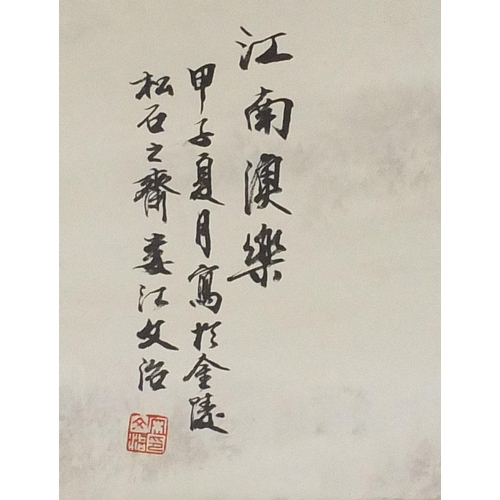 江南漁樂
甲子夏月寫於金陵
松石之齋婁江文治
宋文治印